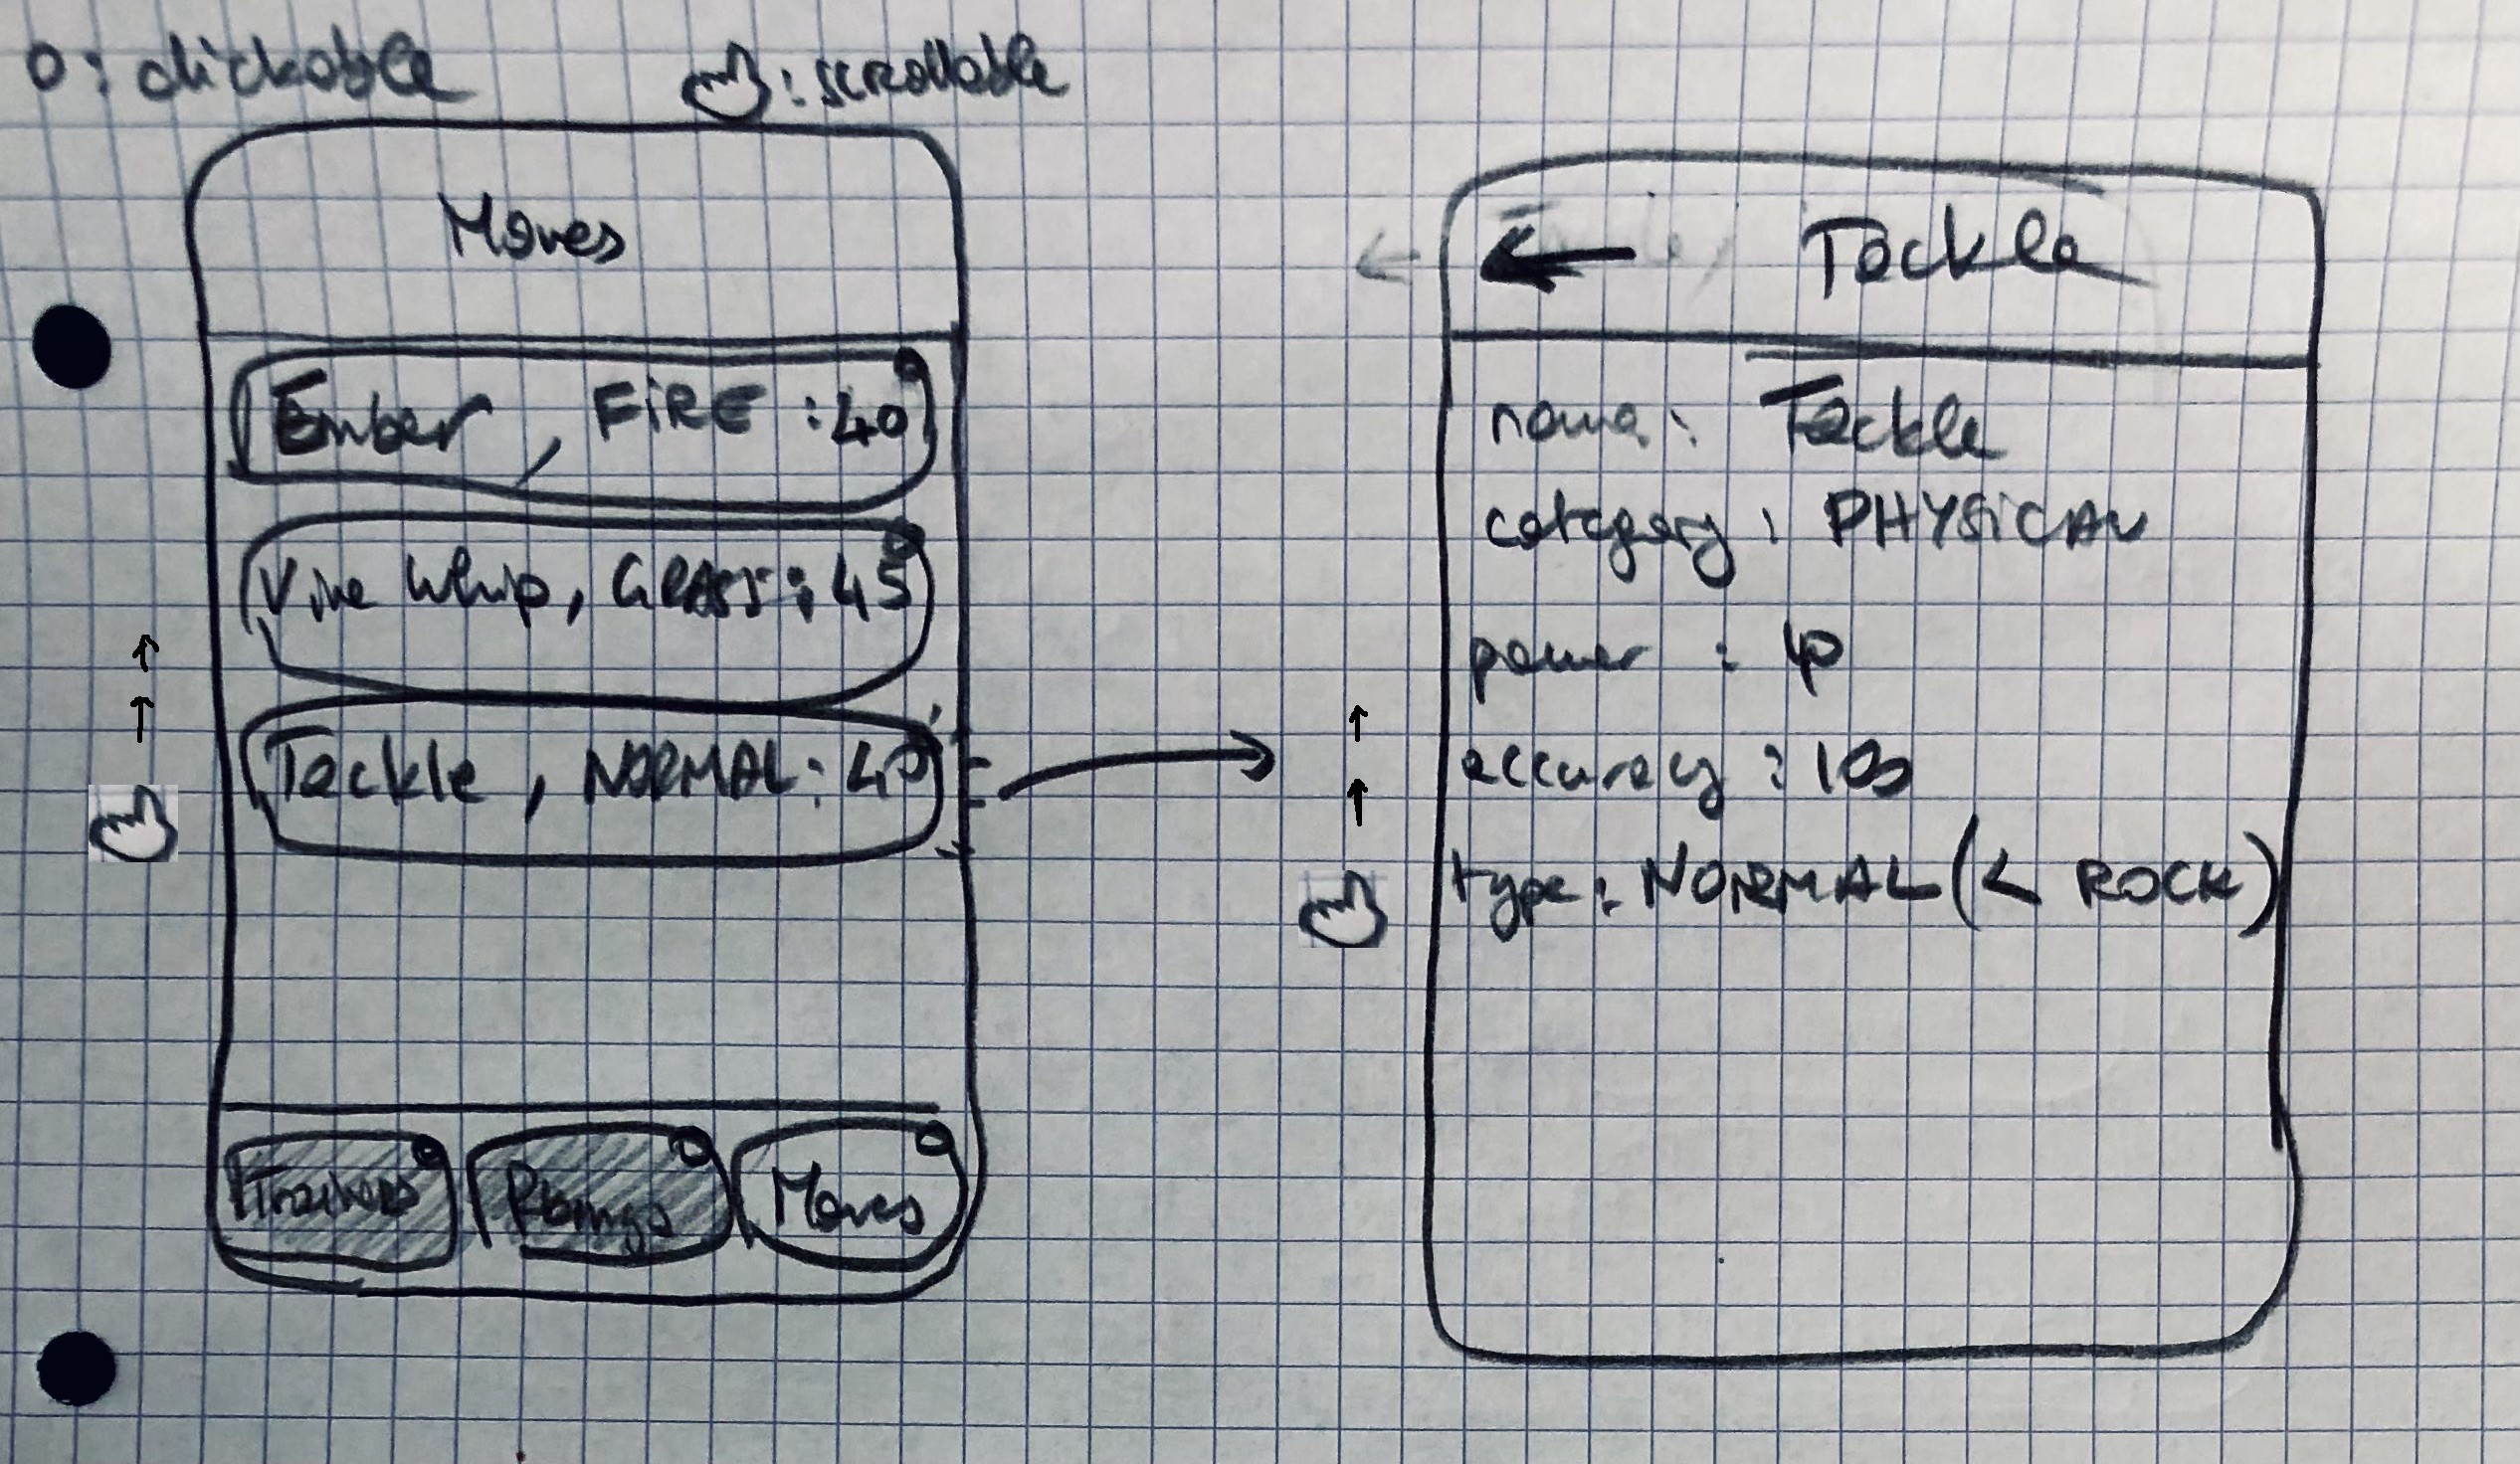 o: clickable
: scrollable
Moves
Ember, FiRE : 40
Vine Whip, GRASS : 45
Tackle, NORMAL : 40
Trainers
Moves
← Tackle
name : Tackle
category : PHYSiCAL
power : 40
accuracy : 100
type : NORMAL (< ROCK)